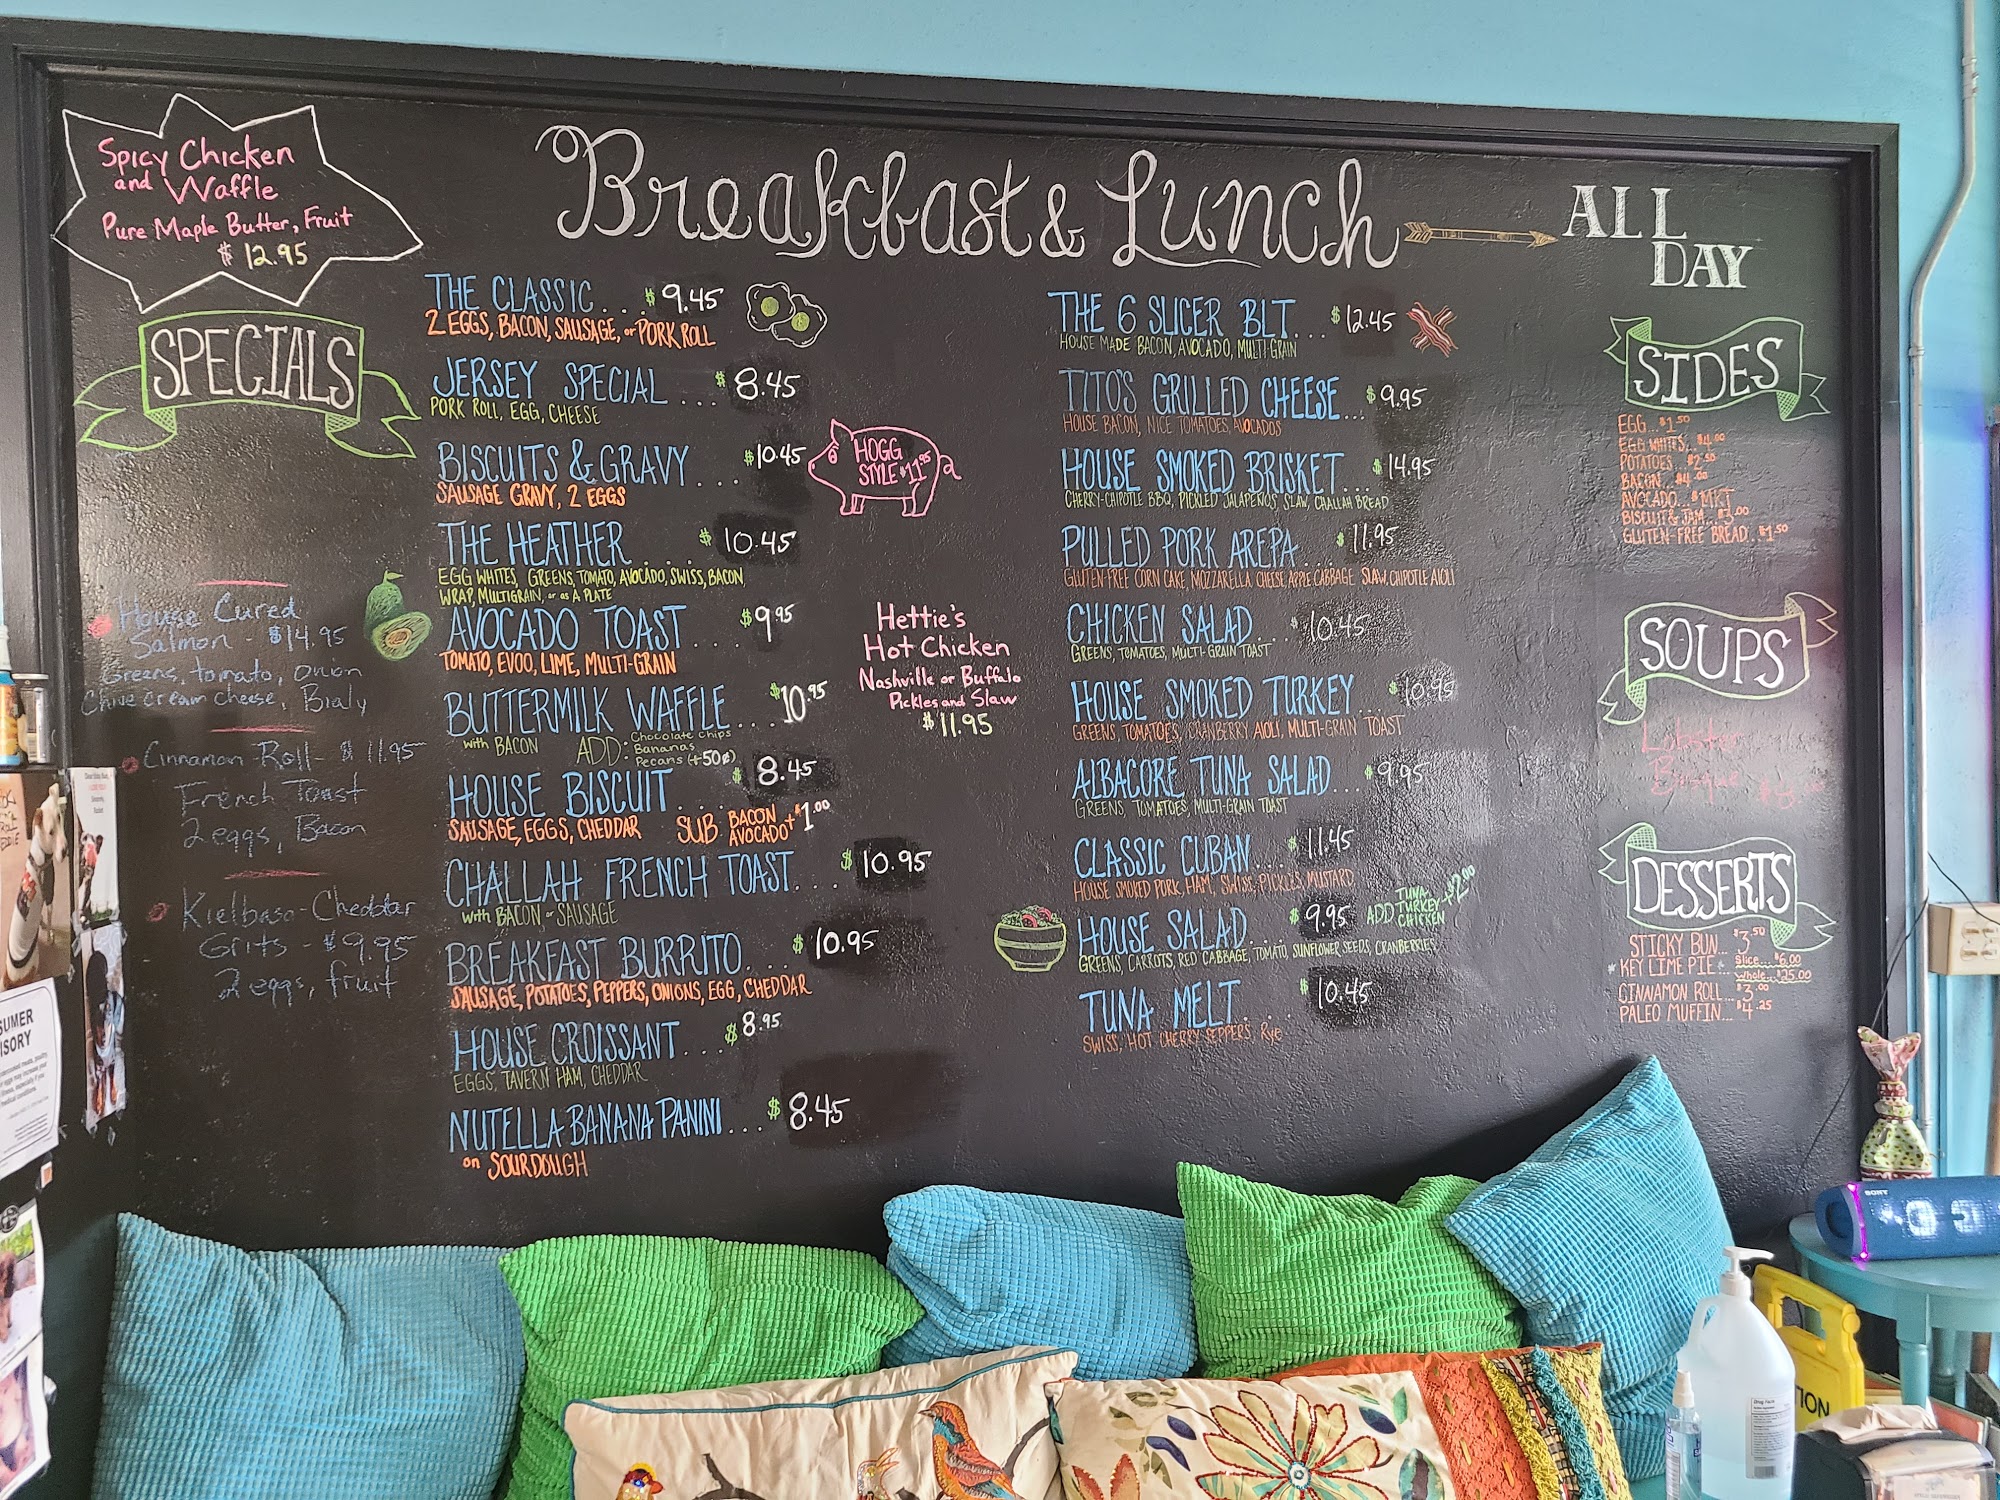 Breakfast & Lunch
ALL
DAY
Spicy Chicken
and Waffle
Pure Maple Butter, Fruit
$ 12.95
SPECIALS
House Cured
Salmon - $14.95
Greens, tomato, onion
Chive cream cheese, Bialy
Cinnamon Roll - $ 11.95
French Toast
2 eggs, Bacon
Kielbasa - Cheddar
Grits - $9.95
2 eggs, fruit
THE CLASSIC... $9.45
2 EGGS, BACON, SAUSAGE, or PORK ROLL
JERSEY SPECIAL... $8.45
PORK ROLL, EGG, CHEESE
BISCUITS & GRAVY... $10.45
SAUSAGE GRAVY, 2 EGGS
HOGG
STYLE $11.95
THE HEATHER.... $10.45
EGG WHITES, GREENS, TOMATO, AVOCADO, SWISS, BACON,
WRAP, MULTIGRAIN, or as A PLATE
AVOCADO TOAST... $9.95
TOMATO, EVOO, LIME, MULTI-GRAIN
BUTTERMILK WAFFLE... $10.95
with BACON ADD: Chocolate chips
Bananas
Pecans (+50¢)
HOUSE BISCUIT.... $8.45
SAUSAGE, EGGS, CHEDDAR SUB BACON
AVOCADO + $1.00
CHALLAH FRENCH TOAST... $10.95
with BACON or SAUSAGE
BREAKFAST BURRITO.... $10.95
SAUSAGE, POTATOES, PEPPERS, ONIONS, EGG, CHEDDAR
HOUSE CROISSANT... $8.95
EGGS, TAVERN HAM, CHEDDAR
NUTELLA BANANA PANINI.... $8.45
on SOURDOUGH
Hettie's
Hot Chicken
Nashville or Buffalo
Pickles and Slaw
$11.95
THE 6 SLICER BLT... $12.45
HOUSE MADE BACON, AVOCADO, MULTI-GRAIN
TITO'S GRILLED CHEESE... $9.95
HOUSE BACON, NICE TOMATOES, AVOCADOS
HOUSE SMOKED BRISKET... $14.95
CHERRY-CHIPOTLE BBQ, PICKLED JALAPEÑOS, SLAW, CHALLAH BREAD
PULLED PORK AREPA... $11.95
GLUTEN-FREE CORN CAKE, MOZZARELLA CHEESE, APPLE CABBAGE SLAW, CHIPOTLE AIOLI
CHICKEN SALAD... $10.45
GREENS, TOMATOES, MULTI-GRAIN TOAST
HOUSE SMOKED TURKEY... $10.95
GREENS, TOMATOES, CRANBERRY AIOLI, MULTI-GRAIN TOAST
ALBACORE TUNA SALAD... $9.95
GREENS, TOMATOES, MULTI-GRAIN TOAST
CLASSIC CUBAN... $11.45
HOUSE SMOKED PORK, HAM, SWISS, PICKLES, MUSTARD
HOUSE SALAD... $9.95 ADD TUNA
TURKEY
CHICKEN +$2.00
GREENS, CARROTS, RED CABBAGE, TOMATO, SUNFLOWER SEEDS, CRANBERRIES
TUNA MELT... $10.45
SWISS, HOT CHERRY PEPPERS, Rye
SIDES
EGG... $1.50
EGG WHITES... $4.00
POTATOES... $2.50
BACON... $4.00
AVOCADO... $MKT
BISCUIT & JAM... $3.00
GLUTEN-FREE BREAD... $1.50
SOUPS
Lobster
Bisque
DESSERTS
STICKY BUN... $3.50
* KEY LIME PIE * Slice... $6.00
Whole... $25.00
CINNAMON ROLL... $3.00
PALEO MUFFIN... $4.25
SUMER
ISORY
SONY
TION